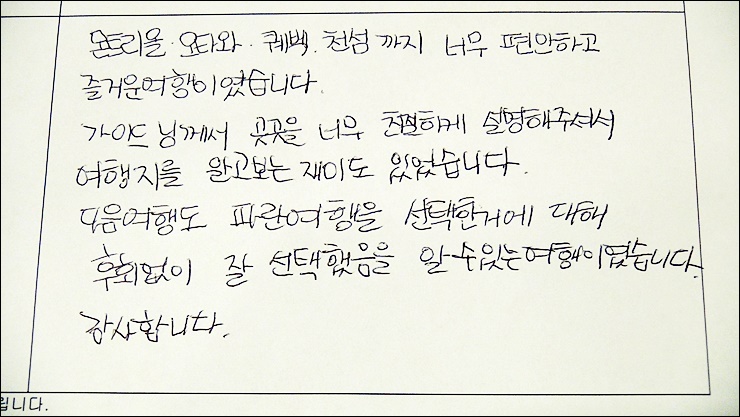 몬트리올·오타와·퀘백·천섬까지 너무 편안하고
즐거운여행이였습니다.
가이드 님께서 곳곳을 너무 친절하게 설명해주셔서
여행지를 알고보는 재미도 있었습니다.
다음여행도 파란여행을 선택한거에 대해
후회없이 잘 선택했음을 알 수있는여행이였습니다.
감사합니다.
립니다.